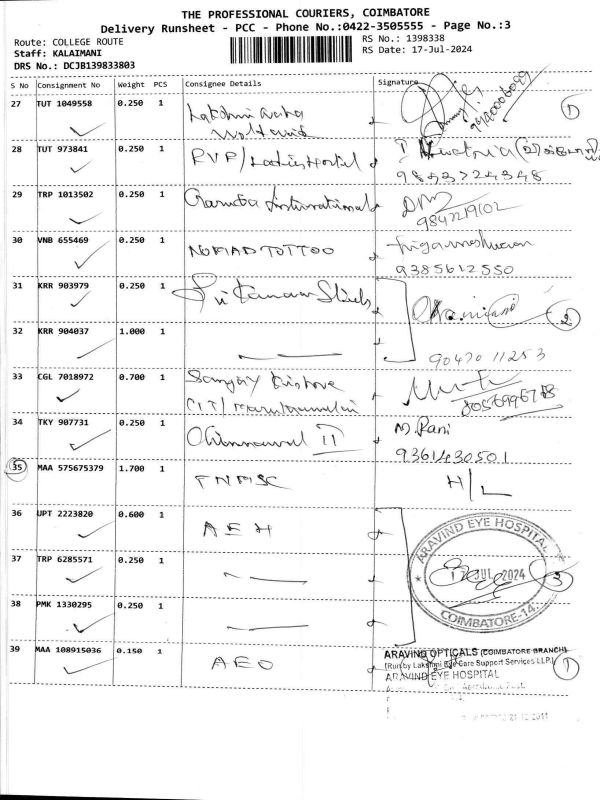 THE PROFESSIONAL COURIERS, COIMBATORE
Delivery Runsheet - PCC - Phone No.:0422-3505555 - Page No.:3
Route: COLLEGE ROUTE
Staff: KALAIMANI
DRS No.: DCJB139833803
RS No.: 1398338
RS Date: 17-Jul-2024
S No Consignment No Weight PCS Consignee Details Signature
27 TUT 1049558 0.250 1
1
28 TUT 973841 0.250 1 PVP/Ladies Hostel
29 TRP 1013502 0.250 1 Garuda International
9842219102
30 VNB 655469 0.250 1 NOMAD TOTTOO
9385612550
31 KRR 903979 0.250 1 Sri Kannan Steels
2
32 KRR 904037 1.000 1
90470 11253
33 CGL 7018972 0.700 1 Sanjay Kishore
CIT/
8056996768
34 TKY 907731 0.250 1 II M. Rani
9361430501
35 MAA 575675379 1.700 1 TNMSC H/L
36 UPT 2223820 0.600 1 AEH
ARAVIND EYE HOSPITAL
17 JUL 2024
COIMBATORE-14.
3
37 TRP 6285571 0.250 1
38 PMK 1330295 0.250 1
39 MAA 108915036 0.150 1 AEO
ARAVIND OPTICALS (COIMBATORE BRANCH)
(Run by Lakshmi Eye Care Support Services LLP.)
ARAVIND EYE HOSPITAL
1